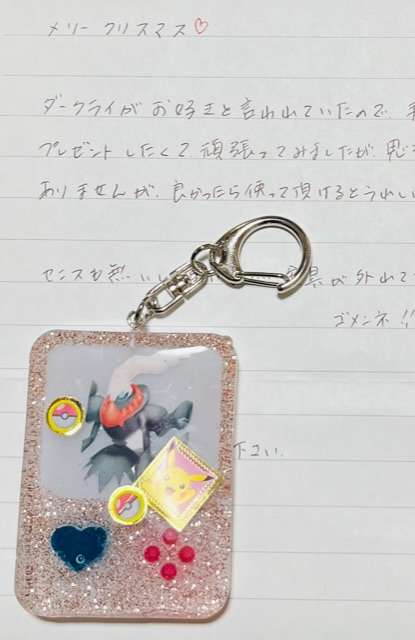 メリークリスマス♡
ダークライがお好きと言われていたので
プレゼントしたくて頑張ってみましたが、思
ありませんが、良かったら使って頂けるとうれしい
センスも無いし 具が外れて
ゴメンネ!!
下さい。